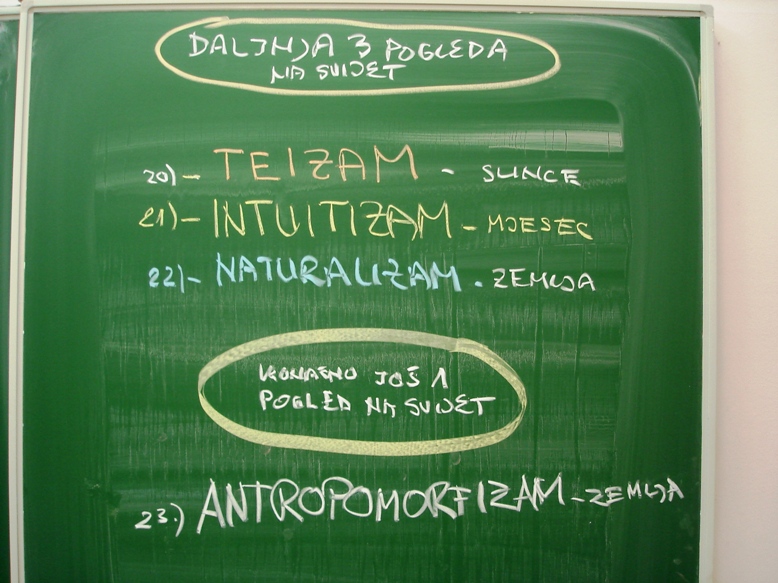 DALJNJA 3 POGLEDA
NA SVIJET
20)- TEIZAM - SUNCE
21)- INTUITIZAM - MJESEC
22)- NATURALIZAM - ZEMLJA
KONAČNO JOŠ 1
POGLED NA SVIJET
23.) ANTROPOMORFIZAM - ZEMLJA